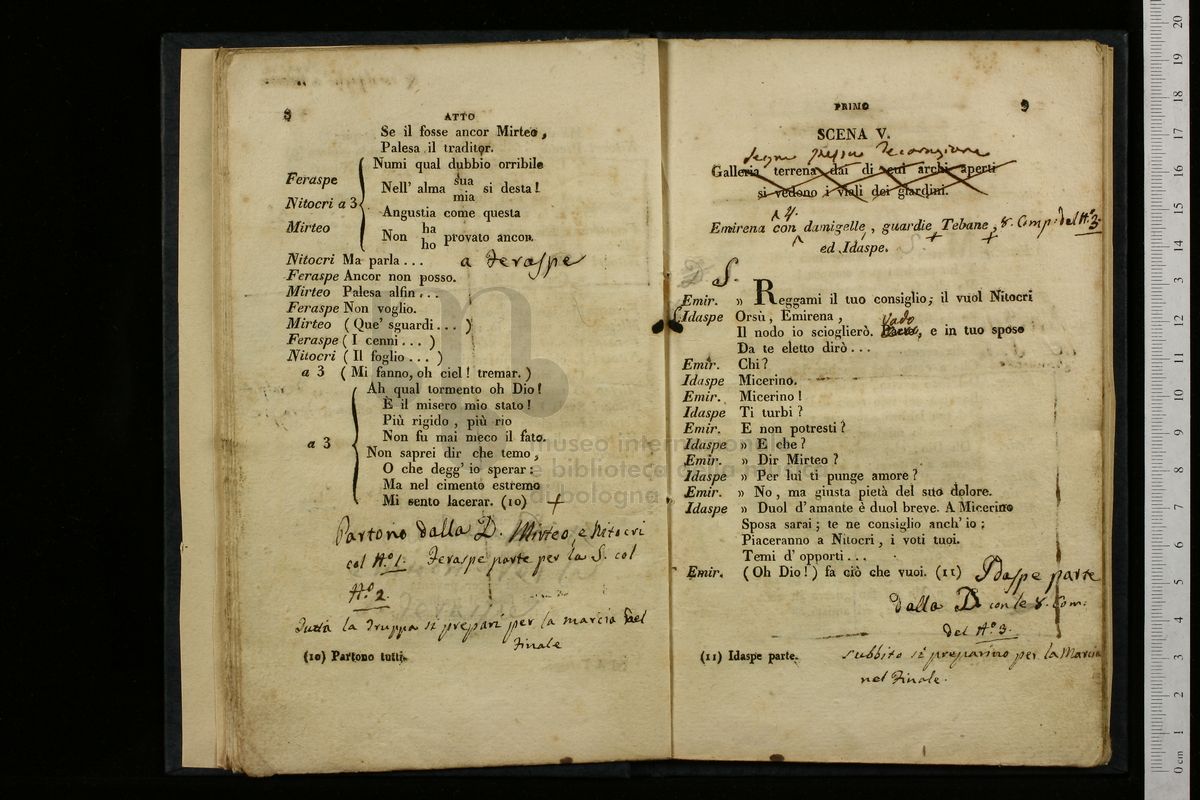 8
ATTO
Se il fosse ancor Mirteo,
Palesa il traditor.
Numi qual dubbio orribile
Feraspe
Nell' alma sua mia si desta!
Nitocri a 3
Angustia come questa
Mirteo
Non ha ho provato ancor.
Nitocri Ma parla... a Feraspe
Feraspe Ancor non posso.
Mirteo Palesa alfin...
Feraspe Non voglio.
Mirteo (Que' sguardi...)
Feraspe (I cenni...)
Nitocri (Il foglio...)
a 3 (Mi fanno, oh ciel! tremar.)
Ah qual tormento oh Dio!
È il misero mio stato!
Più rigido, più rio
Non fu mai meco il fato.
a 3
Non saprei dir che temo,
O che degg' io sperar:
Ma nel cimento estremo
Mi sento lacerar. (10) +
Partono dalla D. Mirteo, e Nitocri
col N.o 1. Feraspe parte per la S. col
N.o 2.
Tutta la Truppa si prepari per la marcia del
Finale
(10) Partono tutti.
PRIMO
9
SCENA V.
Segue stessa Decorazione
Galleria terrena dai di cui archi aperti
si vedono i viali dei giardini.
4.
Emirena con damigelle, guardie Tebane, 8. Comp: del N.o 3.
ed Idaspe.
S.
Emir. » Reggami il tuo consiglio; il vuol Nitocri
Idaspe Orsù, Emirena,
Vado
Il nodo io scioglierò. , e in tuo sposo
Da te eletto dirò...
Emir. Chi?
Idaspe Micerino.
Emir. Micerino!
Idaspe Ti turbi?
Emir. E non potresti?
Idaspe » E che?
Emir. » Dir Mirteo?
Idaspe » Per lui ti punge amore?
Emir. » No, ma giusta pietà del suo dolore.
Idaspe » Duol d' amante è duol breve. A Micerino
Sposa sarai; te ne consiglio anch' io;
Piaceranno a Nitocri, i voti tuoi.
Temi d' opporti...
Emir. (Oh Dio!) fa ciò che vuoi. (11) Idaspe parte
dalla D con le 8. Com:
del N.o 3.
(11) Idaspe parte.
Subbito si preparino per la Marcia
nel Finale.
museo internazionale
e biblioteca della musica
di bologna
0 cm 1 2 3 4 5 6 7 8 9 10 11 12 13 14 15 16 17 18 19 20